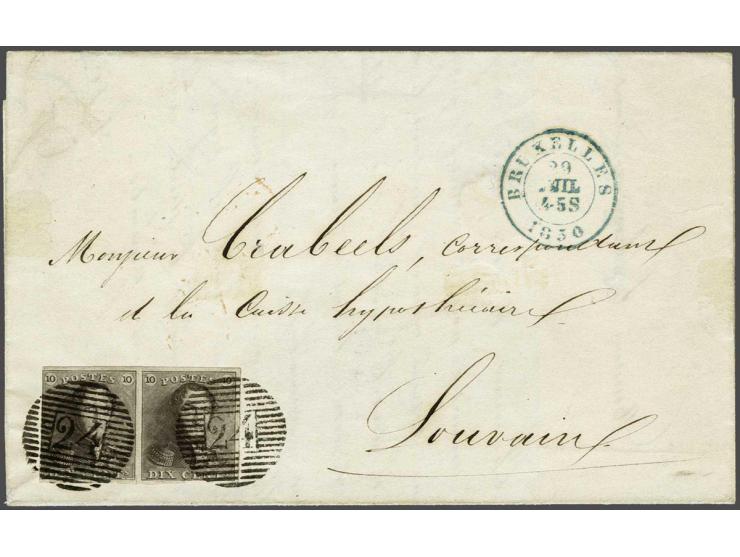 BRUXELLES
29
JUIL
4-5S
1850
Monsieur Crabeels, correspondant
d la Caisse hypothécaire
Louvain
10 POSTES 10
10 POSTES 10
24
24
DIX CENT